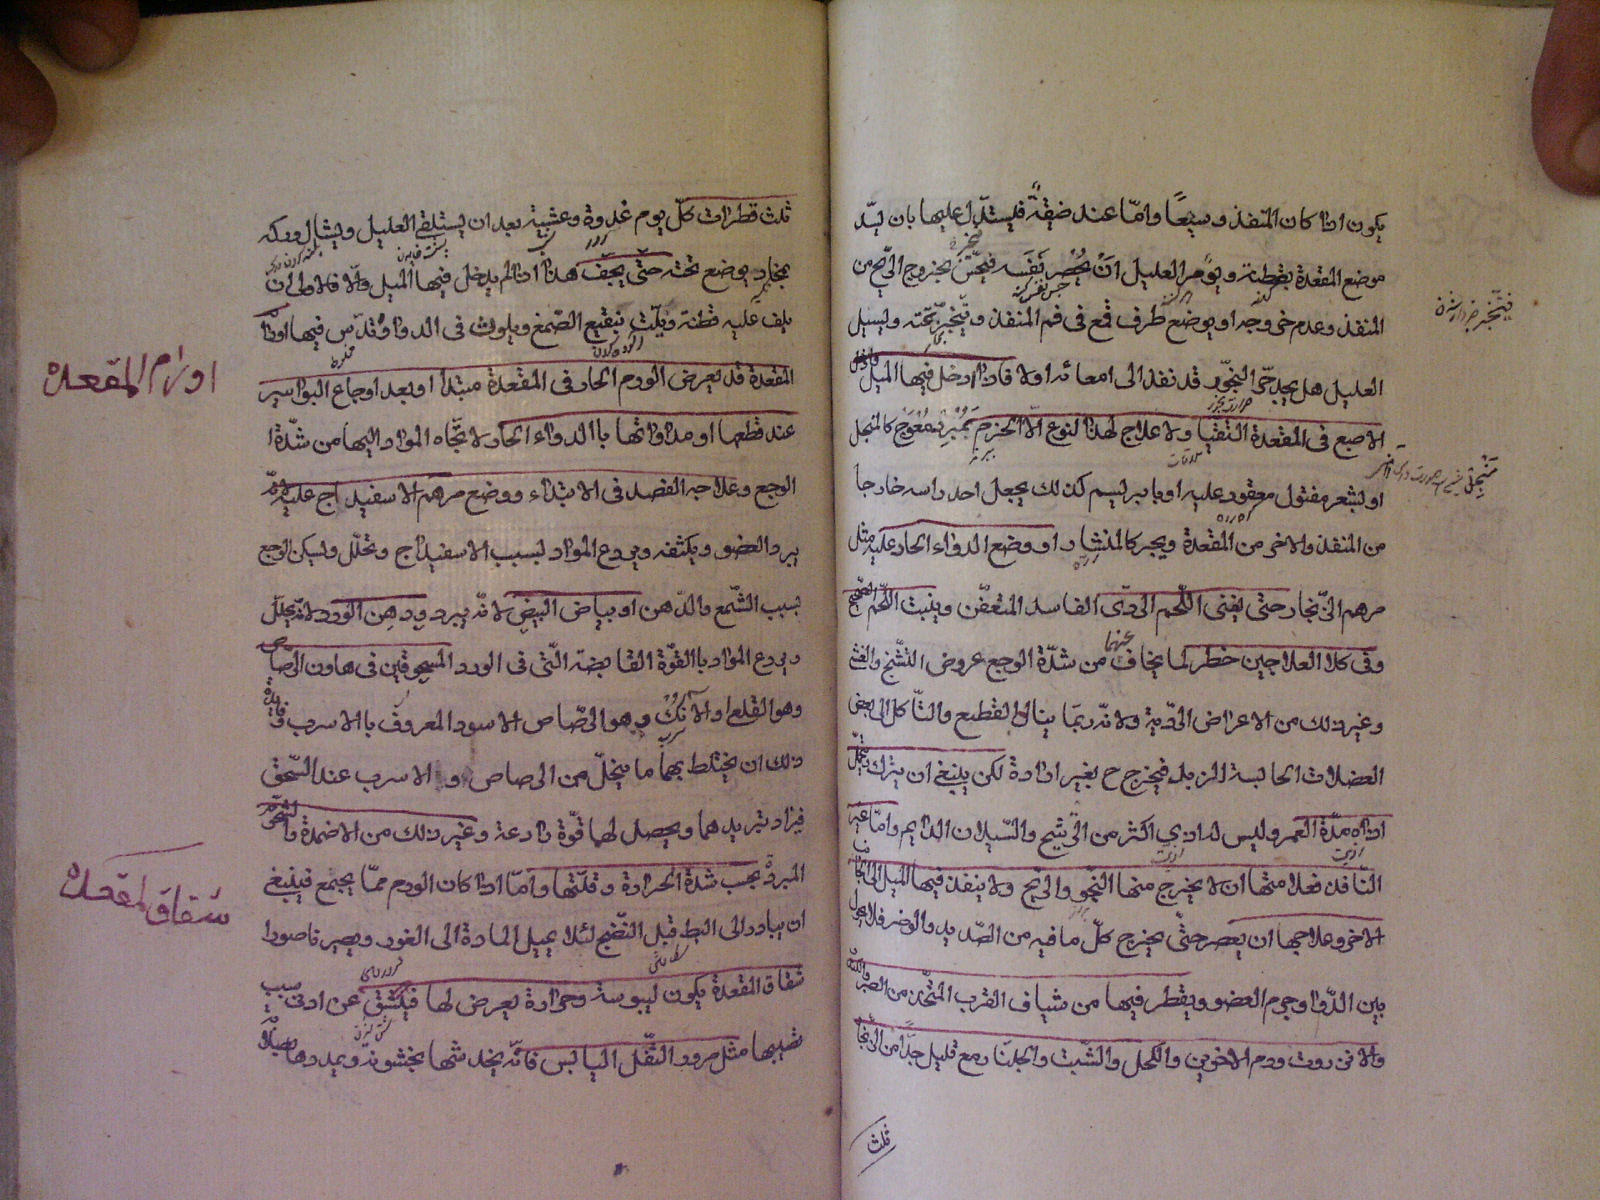 يكون اذا كان المنفذ وسيعًا وامّا عند ضيقهٖ فليستدّل عليها بان يسّد
موضع المقعدة بقطنة ويؤمر العليل انْ يُحْصِر نَفَسه فيحسّ بخروج الريح من
المنفذ وعدم خروجه او يوضع طرف قمع فى فم المنفذ ويتبخّر تحته وليسئل
العليل هل يجد حرّ البخور قد نفذ الى امعائه اولا فاذا ادخل فيها الميل
الاصبع فى المقعدة التقيا ولا علاج لهذا النوع الا الخزم معوج كالمنجل
او بشعر مفتول معقود عليه او بابريسم كذلك يجعل احد راسه خارجا
من المنفذ والاخر من المقعدة ويجر كالمنشار او وضع الدواء الحاد عليه مثل
مرهم الزنجار حتى يفنى اللّحم الردى الفاسد المتعفّن وينبت اللّحم الصحيح
وفى كلا العلاجين خطر لما يخاف عنهما من شدّة الوجع عروض التشنّج والغشى
وغير ذلك من الاعراض الرديّة ولانه ربما ينال القطع والتاكل الى بعض
العضلات الحابسة للزبل فيخرج ح بغير ارادة لكن ينبغى ان يترك
مدّة العمر وليس له اذى اكثر من الرشح والسّيلان الدايم وامّا غير
النافذ فعلامتها ان لا يخرج منها النجو والريح ولا ينفذ فيها الميل الى الجانب
الاخر وعلاجها ان يعصر حتّى يخرج كلّ ما فيه من الصّديد والوضر فلا يحول
بين الدّوا وجرم العضو ويقطر فيها من شياف الغرب المتّخذ من الصبر والكندر
والانزروت ودم الاخوين والكحل والشّب والجلنار مع قليل جدًّا من الزنجار
ثلث
ثلث قطرات كلّ يوم غدوة وعشية بعد ان يستلقى العليل ويشال وركه
بمخاد يوضع تحته حتّى يجفّ هذا اذا لم يدخل فيها الميل والّا فالاولى ان
يلف عليه قطنة ويبلّت بنقيع الصّمغ ويلوث فى الدوا وتدّس فيها اورام
المقعدة قد يعرض الورم الحار فى المقعدة مبتدأ او بعد اوجاع البواسير
عند قطعها او مداواتها باالدواء الحاد لاتجاه المواد اليها من شدّة
الوجع وعلاجه الفصد فى الابتداء ووضع مرهم الاسفيداج عليه لانه
يبرد العضو ويكثفه ويردع المواد بسبب الاسفيداج وتحلّل ويسكن الوجع
بسبب الشّمع والدّهن او بياض البيض لانه يبرد ودهن الورد لانه يحلّل
ويردع المواد باالقوّة القابضة الّتى فى الورد المسحوقين فى هاون الرصّاص
وهو القلعى او الآنُك وهو الرصّاص الاسود المعروف باالاسرب فائدة
ذلك ان يختلط بهما ما يتحلّ من الرصاص او الاسرب عند السّحق
فيزاد تبريدهما ويحصل لهما قوّة رادعة وغير ذلك من الاضمدة والشحوم
المبردة بحسب شدّة الحرارة وقلّتها وامّا اذا كان الورم ممّا يجتمع فينبغى
ان يبادر الى البط قبل النّضج لئلا يميل المادة الى الغور ويصير ناصورا
شقاق المقعدة يكون ليبوسة وحرارة يعرض لها فينشق عن ادنى سبب
يصيبها مثل مرور الثّفل اليابس فانّه يخدشها بخشونة ويمددها بصلابة
اورام المقعده
شقاق المقعده